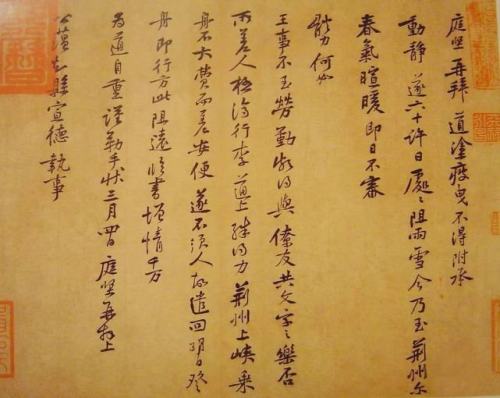 庭堅再拜道塗疲曳不得附承
動靜遂六十許日處々阻雨雪今乃至荊州尔
春氣暄暖即日不審
體力何如
王事不至勞勤頗得與僚友共文字之樂否
所差人極濟行李道上殊得力荊州上峽乘
舟不大費而差安便遂不須人故遣回明日登
舟即行方此阻遠臨書增情千万
為道自重謹勒手狀三月四日庭堅再拜上
公蘊知縣宣德執事